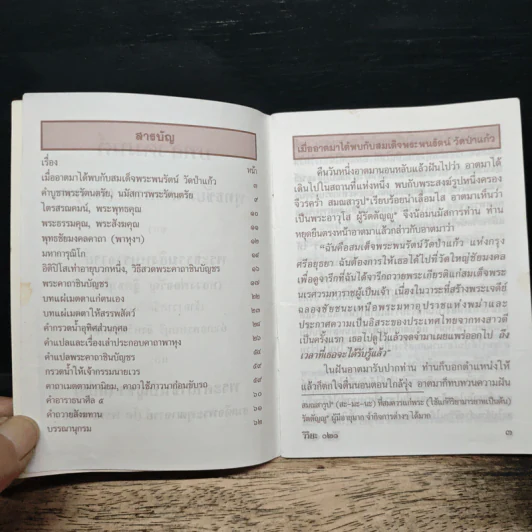 สารบัญ
เรื่อง หน้า
เมื่ออาตมาได้พบกับสมเด็จพระพนรัตน์ วัดป่าแก้ว ๓
คำบูชาพระรัตนตรัย, นมัสการพระรัตนตรัย ๙
ไตรสรณคมน์, พระพุทธคุณ ๑๐
พระธรรมคุณ, พระสังฆคุณ ๑๑
พุทธชัยมงคลคาถา (พาหุงฯ) ๑๒
มหาการุณิโก ๑๔
อิติปิโสเท่าอายุบวกหนึ่ง, วิธีสวดพระคาถาชินบัญชร
พระคาถาชินบัญชร
บทแผ่เมตตาแก่ตนเอง
บทแผ่เมตตาให้สรรพสัตว์
คำกรวดน้ำอุทิศส่วนกุศล
คำแปลและเรื่องเล่าประกอบคาถาพาหุง
คำแปลพระคาถาชินบัญชร
กรวดน้ำให้เจ้ากรรมนายเวร
คาถาเมตตามหานิยม, คาถาใช้ภาวนาก่อนขับรถ
คำอาราธนาศีล ๕
คำถวายสังฆทาน
บรรณานุกรม ๖๒
เมื่ออาตมาได้พบกับสมเด็จพระพนรัตน์ วัดป่าแก้ว
คืนวันหนึ่งอาตมานอนหลับแล้วฝันไปว่า อาตมาได้
เดินไปในสถานที่แห่งหนึ่ง พบกับพระสงฆ์รูปหนึ่งครอง
จีวรคร่ำ สมณสารูป* เรียบร้อยน่าเลื่อมใส อาตมาเห็นว่า
เป็นพระอาวุโส ผู้รัตตัญญู* จึงน้อมนมัสการท่าน ท่าน
หยุดยืนตรงหน้าอาตมาแล้วกล่าวกับอาตมาว่า
"ฉันคือสมเด็จพระพนรัตน์วัดป่าแก้ว แห่งกรุง
ศรีอยุธยา ฉันต้องการให้เธอได้ไปที่วัดใหญ่ชัยมงคล
เพื่อดูจารึกที่ฉันได้จารึกถวายพระเกียรติแก่สมเด็จพระ
นเรศวรมหาราชผู้เป็นเจ้า เนื่องในวาระที่สร้างพระเจดีย์
ฉลองชัยชนะเหนือพระมหาอุปราชแห่งพม่าและ
ประกาศความเป็นอิสระของประเทศไทยจากหงสาวดี
เป็นครั้งแรก เธอไปดูไว้แล้วจดจำมาเผยแพร่ออกไป ถึง
เวลาที่เธอจะได้รับรู้แล้ว"
ในฝันอาตมารับปากท่าน ท่านก็บอกตำแหน่งให้
แล้วก็ตกใจตื่นนอนตอนใกล้รุ่ง อาตมาก็ทบทวนความฝัน
สมณสารูป* (สะ-มะ-นะ) ที่สมควรแก่พระ (ใช้แก่กิริยามารยาทเป็นต้น)
รัตตัญญู* ผู้มีอายุมาก จำกิจการต่างๆ ได้มาก
วิริยะ ๐๒๑ ๓